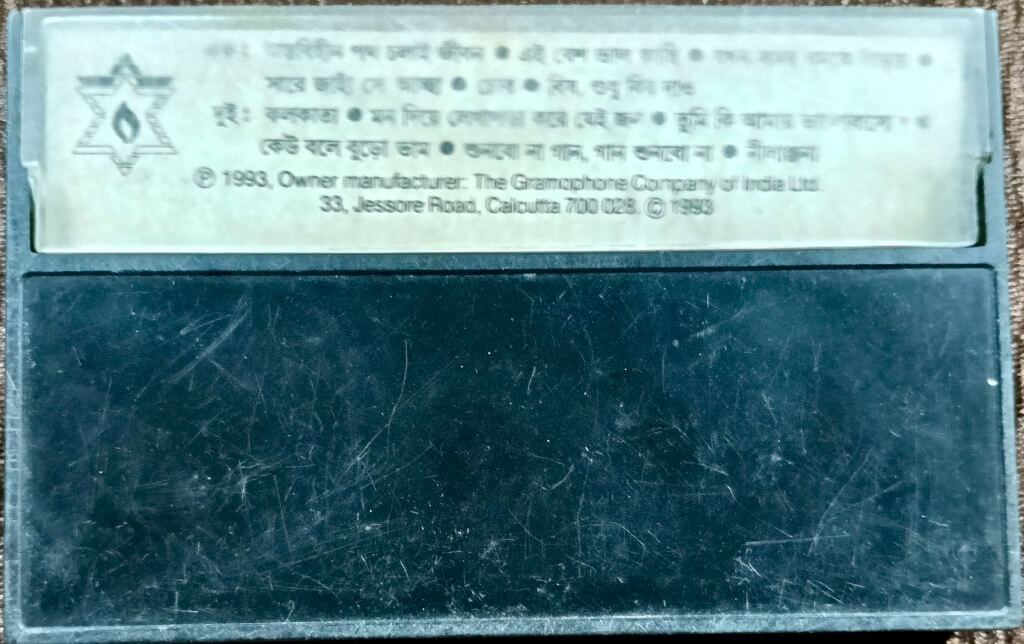 এক: সারাদিন পথ চলাই জীবন ● এই বেশ ভাল আছি ● যখন সময় থমকে দাঁড়ায় ●
সারে জাঁহা সে আচ্ছা ● চোর ● বিষ, শুধু বিষ দাও
দুই: কলকাতা ● মন দিয়ে লেখাপড়া করে যেই জন ● তুমি কি আমায় ভালবাসো ? ●
কেউ বলে বুড়ো ভাম ● শুনবো না গান, গান শুনবো না ● নীলাঞ্জনা
Ⓟ 1993, Owner manufacturer: The Gramophone Company of India Ltd.
33, Jessore Road, Calcutta 700 028. © 1993